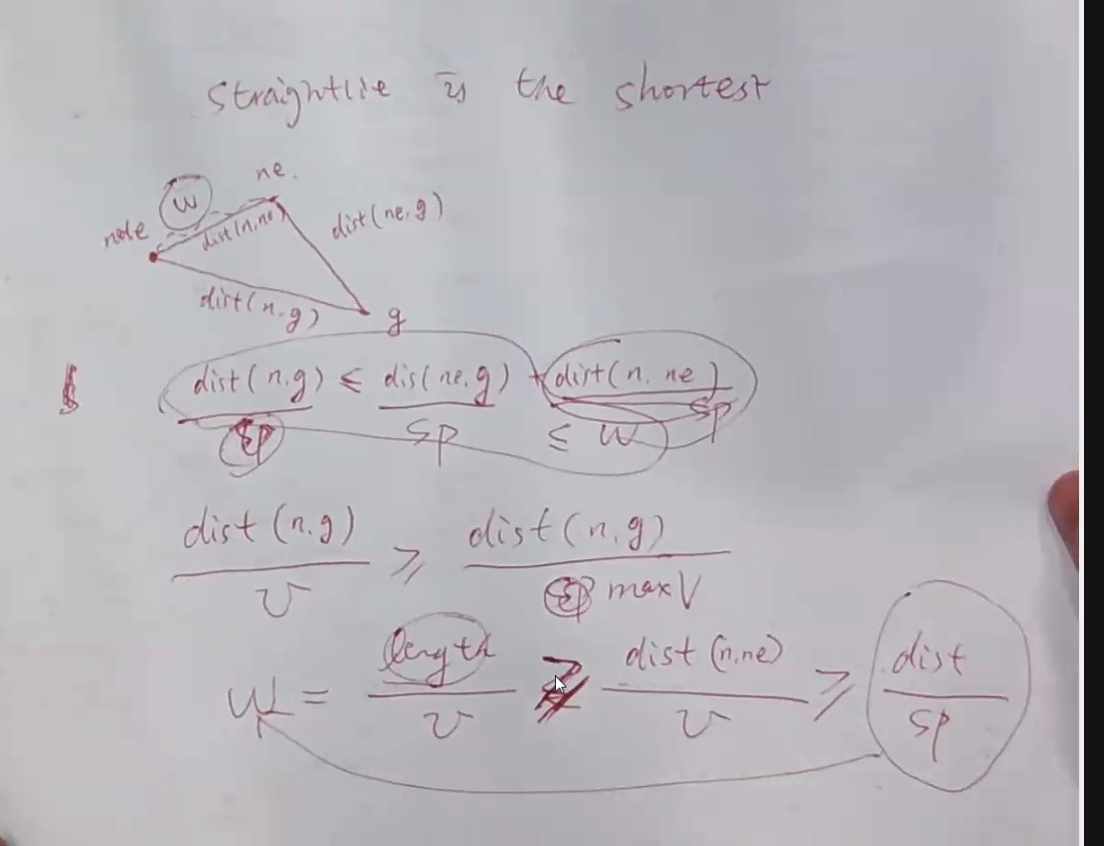 straightlie is the shortest
ne.
w
node
dist(n,ne)
dist(ne,g)
dist(n,g)
g
dist(n,g) ≤ dis(ne,g) + dist(n,ne)
sp sp ≤ w sp
dist(n,g) ≥ dist(n,g)
v sp maxV
w = length ≥ dist(n,ne) ≥ dist
v v sp